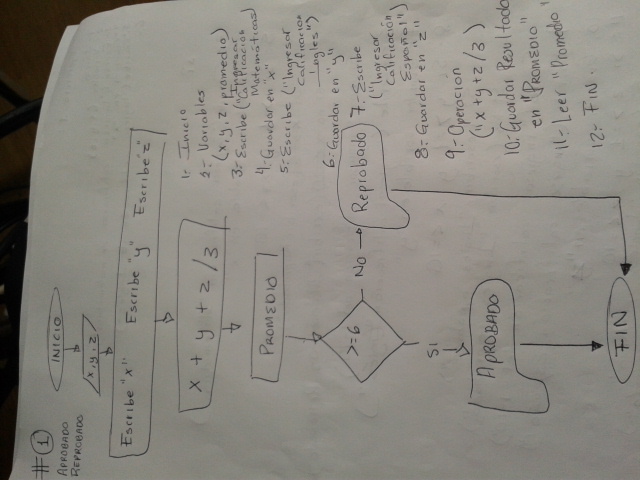 #1
APROBADO
REPROBADO
INICIO
x, y, z
Escribe "x" Escribe "y" Escribe "z"
x + y + z / 3
PROMEDIO
>=6
NO
Reprobado
SI
APROBADO
FIN
1.- Inicio
2.- Variables
(x, y, z, promedio)
3.- Escribe ("Ingresar
Calificación
Matemáticas)
4.- Guardar en "x"
5.- Escribe ("Ingresar
Calificacion
Ingles")
6.- Guardar en "y"
7.- Escribe
("Ingresar
Calificación
Español")
8.- Guardar en "z"
9.- Operación
("x + y + z / 3)
10.- Guardar Resultado
en "PROMEDIO"
11.- Leer "Promedio"
12.- FIN.